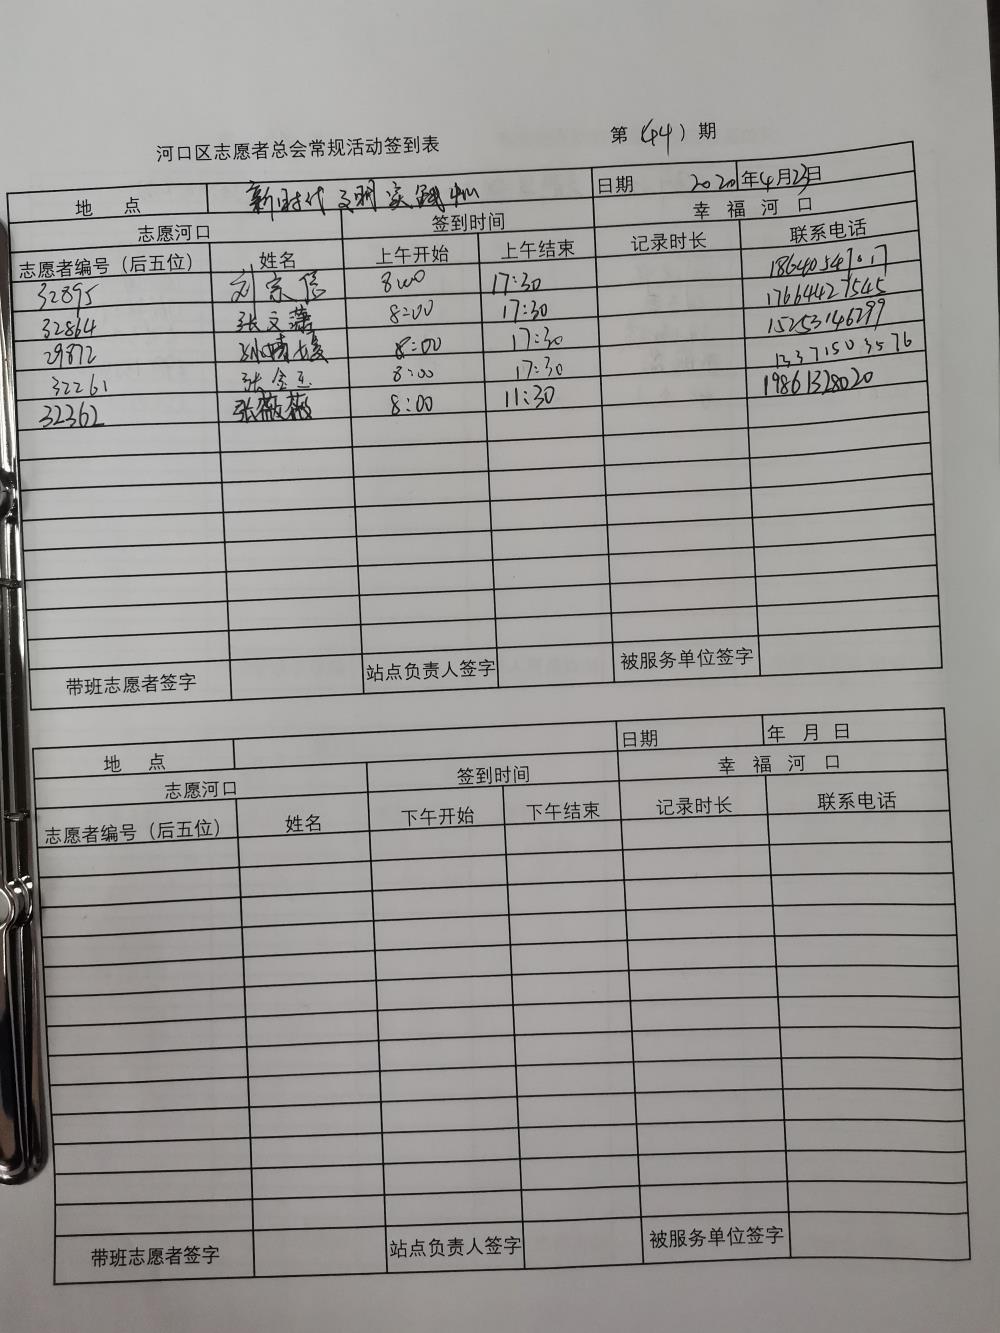 河口区志愿者总会常规活动签到表 第(44)期
地 点 新时代文明实践 日期 2020年4月23日
志愿河口 签到时间 幸 福 河 口
志愿者编号（后五位） 姓名 上午开始 上午结束 记录时长 联系电话
32895 刘宗信 8:00 17:30 18640547017
32864 张文 8:00 17:30 17664427545
29872 孙晴 8:00 17:30 15253146299
32261 张金 8:00 17:30 13371503576
32362 张薇薇 8:00 11:30 19861328020
带班志愿者签字 站点负责人签字 被服务单位签字
地 点 日期 年 月 日
志愿河口 签到时间 幸 福 河 口
志愿者编号（后五位） 姓名 下午开始 下午结束 记录时长 联系电话
带班志愿者签字 站点负责人签字 被服务单位签字